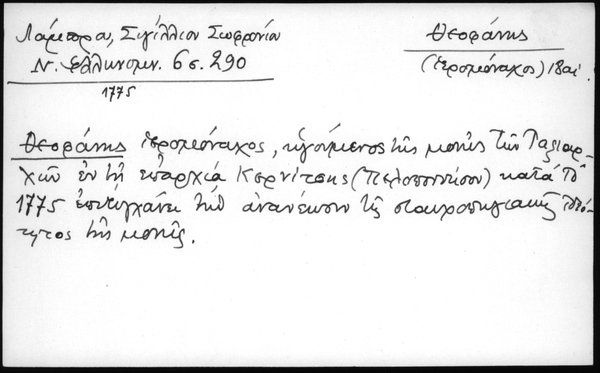 Λάμπρου, Σιγίλλιον Σωφρονίου
Θεοφάνης
Ν. Ἑλληνομν. 6 σ. 290
(ἱερομόναχος) 18 αἰ.
1775
Θεοφάνης ἱερομόναχος, ἡγούμενος τῆς μονῆς τῶν Ταξιαρ-
χῶν ἐν τῇ ἐπαρχίᾳ Κερνίτσης (Πελοποννήσου) κατὰ τὸ
1775 ἐπιτυγχάνει τὴν ἀνανέωσιν τῆς σταυροπηγιακῆς ἰδιό-
τητος τῆς μονῆς.